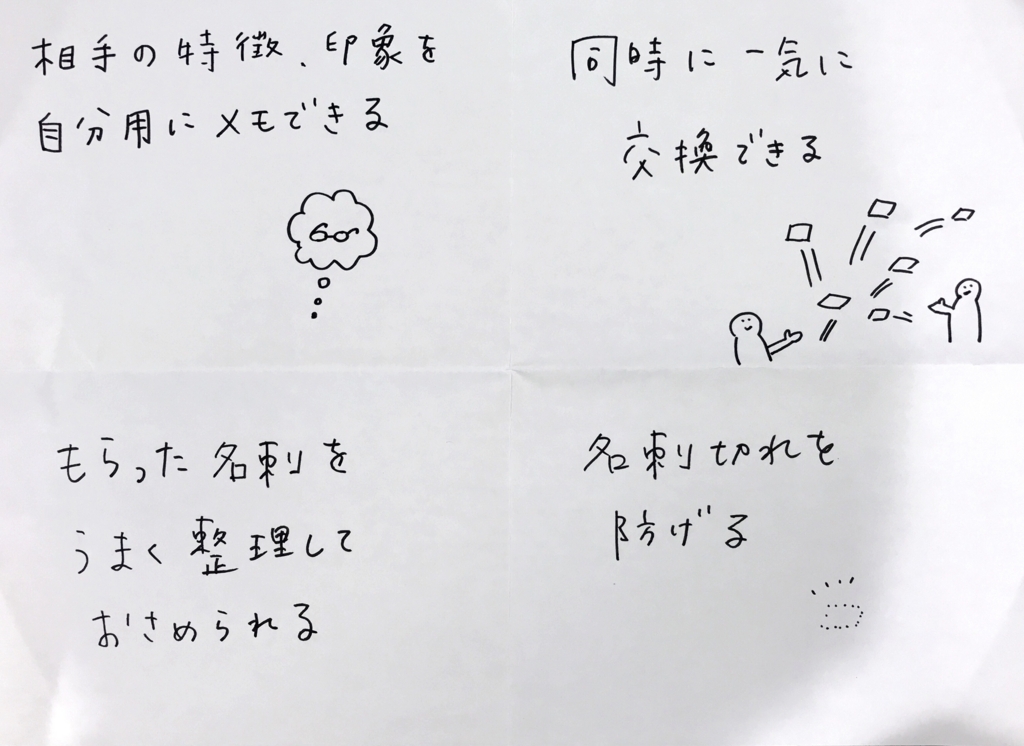 相手の特徴、印象を
自分用にメモできる
同時に一気に
交換できる
もらった名刺を
うまく整理して
おさめられる
名刺切れを
防げる